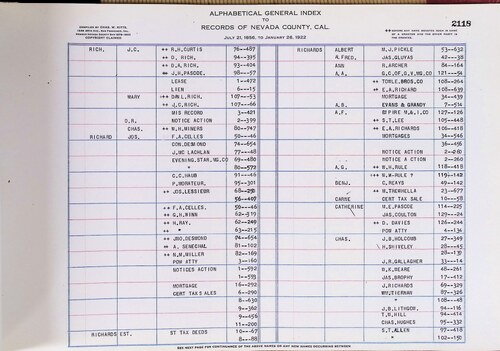 ALPHABETICAL GENERAL INDEX
TO
RECORDS OF NEVADA COUNTY, CAL.
JULY 21, 1856, TO JANUARY 28, 1922
2118
COMPILED BY CHAS. W. KITTS,
COPYRIGHT CLAIMED
RICH, J.C. ++ R.H.CURTIS 76--487
++ D. RICH, 94--395
++ DA. RICH, 93--404
++ J.H.PASCOE, 98--57
LEASE 1--472
LIEN 6--15
MARY ++ DAN L. RICH, 107--53
++ J.C. RICH, 107--66
MIS RECORD 3--421
D.R. NOTICE ACTION 2--399
CHAS. ++ N.H.MINERS 80--747
RICHARD JOS. F.A.CELLES 50--46
CON.DESMOND 74--654
J.MC LACHLAN 77--48
EVENING.STAR.MG.CO 69--480
" 80--572
C.C.HAUB 91--46
P.MORATEUR, 95--301
++ JOS.LESSIEUR 68--20
56--407
++ F.A.CELLES, 50--46
++ G.H.NINN 62--310
++ H.RAY, 62--249
++ " 63--215
++ JNO.DESMOND 74--654
++ A. SENECHAL 81--102
++ N.M.MILLER 82--169
POW ATTY 3--160
NOTICES ACTION 1--592
1--593
MORTGAGE 16--292
CERT TAX SALES 6--290
8--630
9--362
9--456
11--200
RICHARDS EST. ST TAX DEEDS 10--67
8--88
RICHARDS ALBERT M.J.PICKLE 53--632
A.FRED, JAS.GLUYAS 42--38
ANN R.ARCHER 84--164
A.A. G.C.OF.G.V.MG.CO 121--54
++ TOWLE.BROS.CO 108--264
++ E.A.RICHARD 108--639
MORTGAGE 34--439
A.B. EVANS & GRANDY 7--514
A.F. EMPIRE M.& I.CO 127--126
++ S.T.LEE 105--448
++ E.A.RICHARDS 106--418
MORTGAGES 34--546
36--456
NOTICE ACTION 2--260
NOTICE ACTION 2--260
++ W.H.RULE 118--418
++ W.M.RULE ? 119--142
BENJ. C.REAYS 49--142
++ W.TREWHELLA 23--677
CARNE CERT TAX SALE 10--58
CATHERINE H.E.PASCOE 114--225
JAS.COULTON 129--24
++ D. DAVIES 126--244
POW ATTY 4--134
CHAS. J.B.HOLCOMB 27--349
H.SHIVELEY 28--45
28--130
J.R.GALLAGHER 33--14
R.K.WEARE 48--261
JAS.BROPHY 17--412
J.RICHARDS 69--329
WM.TIERNAN 87--326
" 108--48
J.B.LITHGOW, 94--116
T.H.HILL 94--614
CHAS.HUGHES 95--332
S.T.ALLEN 97--418
" 102--150
SEE NEXT PAGE FOR CONTINUANCE OF THE ABOVE NAMES OR ANY NEW NAMES OCCURRING BETWEEN